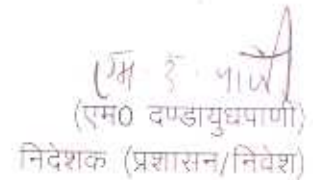 (एम0 दण्डायुधपाणी)
निदेशक (प्रशासन/निवेश)